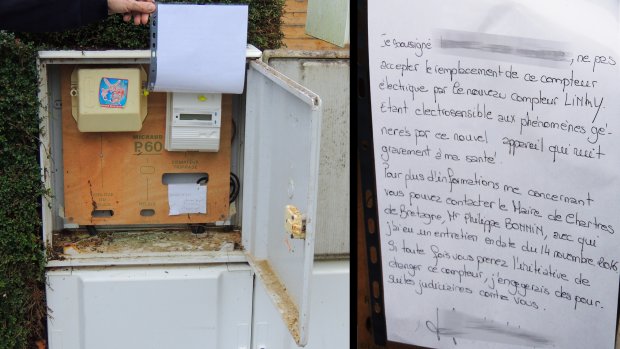 MICHAUD
P60
Je soussigné , ne pas
accepter le remplacement de ce compteur
électrique par le nouveau compteur LINKY.
Etant electrosensible aux phénomènes gé-
nérés par ce nouvel appareil qui nuit
gravement à ma santé.
Pour plus d'informations me concernant
vous pouvez contacter le Maire de Chartres
de Bretagne, Mr Philippe BONNIN, avec qui
j'ai eu un entretien en date du 14 novembre 2016
Si toute fois vous prenez l'initiative de
changer ce compteur, j'engagerais des pour-
suites judiciaires contre vous.